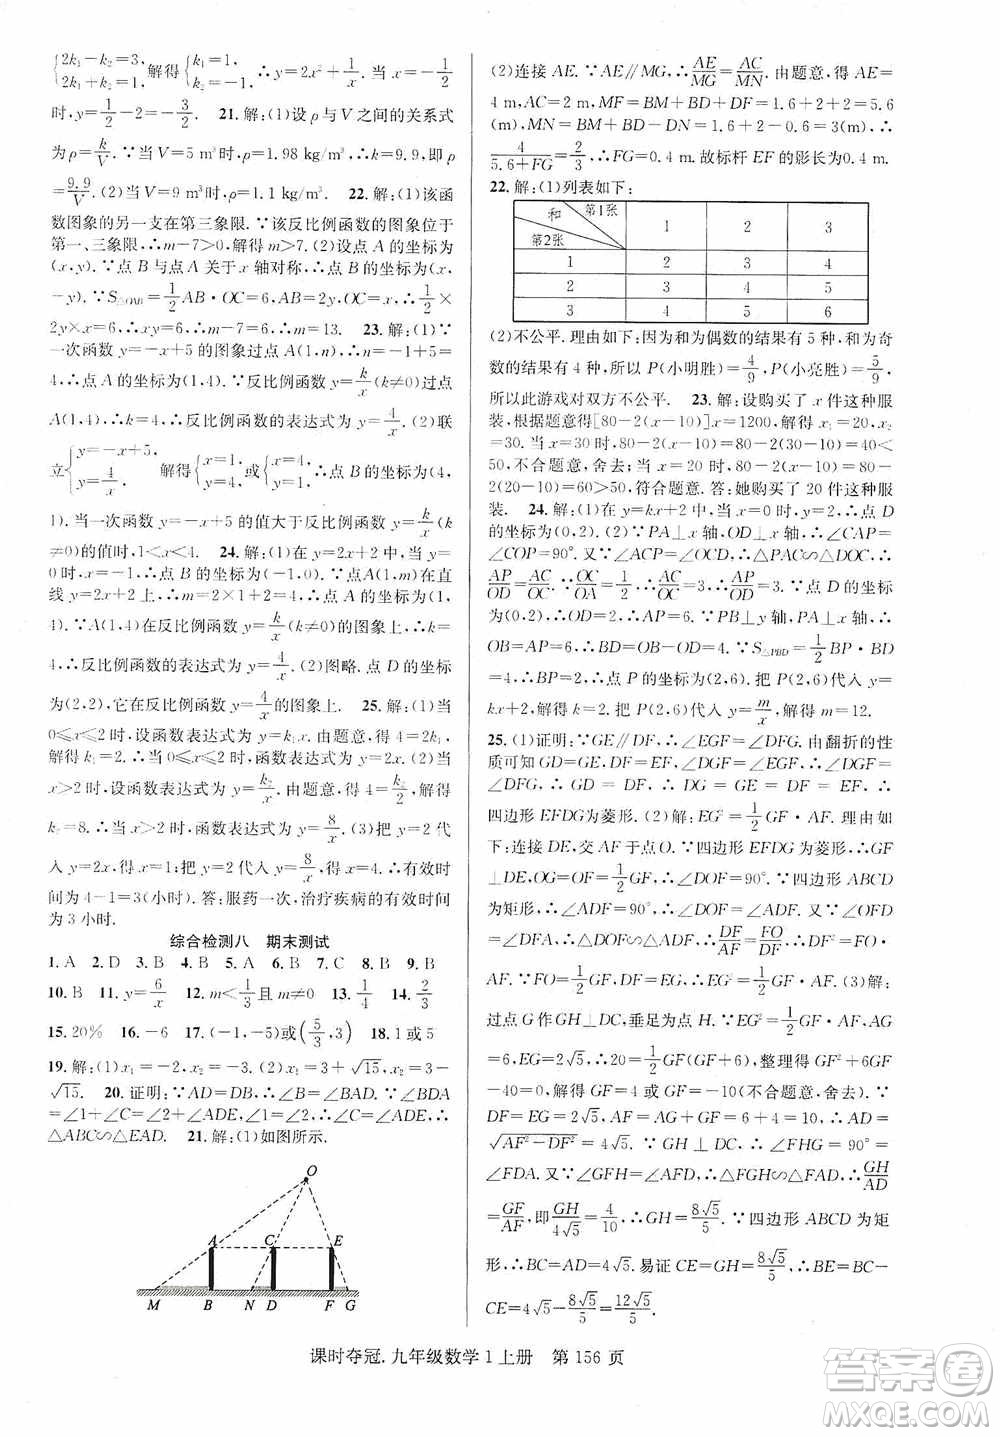 {2k₁-k₂=3, 2k₁+k₂=1, 解得{k₁=1, k₂=-1, ∴y=2x²+1/x. 当 x=-1/2
时,y=2×1/4-2=-3/2. 21.解:(1)设 ρ 与 V 之间的关系式
为 ρ=k/V. ∵当 V=5 m³时,ρ=1.98 kg/m³,∴k=9.9,即 ρ=
9.9/V.(2)当 V=9 m³时,ρ=1.1 kg/m³. 22.解:(1)该函
数图象的另一支在第三象限.∵该反比例函数的图象位于
第一、三象限,∴m-7>0,解得 m>7.(2)设点 A 的坐标为
(x,y).∵点 B 与点 A 关于 x 轴对称,∴点 B 的坐标为(x,
-y).∵S△OAB=1/2AB·OC=6,AB=2y,OC=x,∴1/2×
2y×x=6,∴xy=6,∴m-7=6,∴m=13. 23.解:(1)∵
一次函数 y=-x+5 的图象过点 A(1,n),∴n=-1+5=
4,∴点 A 的坐标为(1,4).∵反比例函数 y=k/x(k≠0)过点
A(1,4),∴k=4,∴反比例函数的表达式为 y=4/x.(2)联
立{y=-x+5, y=4/x, 解得{x=1, y=4, 或{x=4, y=1, ∴点 B 的坐标为(4,
1).当一次函数 y=-x+5 的值大于反比例函数 y=k/x(k
≠0)的值时,1<x<4. 24.解:(1)∵点 A 的坐标为(1,
m),点 B 的坐标为(-1,0).∵点A(1,m)在直
线 y=2x+2 上,∴m=2×1+2=4,∴点 A 的坐标为(1,
4).∵A(1,4)在反比例函数 y=k/x(k≠0)的图象上,∴k=
4,∴反比例函数的表达式为 y=4/x.(2)图略.点 D 的坐标
为(2,2),它在反比例函数 y=4/x的图象上. 25.解:(1)当
0≤x≤2 时,设函数表达式为 y=k₁x.由题意,得 4=2k₁,
解得 k₁=2.∴当 0≤x≤2 时,函数表达式为 y=2x.(2)当
x>2 时,设函数表达式为 y=k₂/x.由题意,得 4=k₂/2,解得
k₂=8.∴当 x>2 时,函数表达式为 y=8/x.(3)把 y=2 代
入 y=2x,得 x=1.把 y=2 代入 y=8/x,得 x=4.∴有效时
间为 4-1=3(小时).答:服药一次,治疗疾病的有效时间
为 3 小时.
综合检测八 期末测试
1.A 2.D 3.B 4.B 5.A 6.D 7.C 8.B 9.B
10.B 11.y=6/x 12.m<1/3且 m≠0 13.1/4 14.2/3
15.20% 16.-6 17.(-1,-5)或(5/3,3) 18.1 或 5
19.解:(1)x₁=-2,x₂=-3.(2)x₁=3+√15,x₂=3-
√15. 20.证明:∵AD=DB,∴∠B=∠1.∵∠BDA
=∠1+∠2+∠ADE,∴∠2=∠ADE.又∵∠1=∠B,∴
△ABC∽△EAD. 21.解:(1)如图所示.
O
A C E
M B N D F G
(2)连接 AE.∵AE∥MG,∴AE/MG=AC/MN.由题意,得 AE=
4 m,AC=2 m,MF=BM+BD+DF=1.6+2+2=5.6
(m),MN=BM+BD-DN=1.6+2-0.6=3(m),∴
4/(5.6+FG)=2/3,∴FG=0.4 m.故标杆 EF 的影长为 0.4 m.
22.解:(1)列表如下:
和 第1张 第2张 1 2 3
1 2 3 4
2 3 4 5
3 4 5 6
(2)不公平.理由如下:因为和为偶数的结果有 5 种,和为奇
数的结果有 4 种,所以 P(小明胜)=4/9,P(小亮胜)=5/9,
所以此游戏对双方不公平. 23.解:设购买了 x 件这种服
装,根据题意得[80-2(x-10)]x=1200,解得 x₁=20,x₂
=30.当 x=30 时,80-2(x-10)=80-2(30-10)=40<
50,不合题意,舍去;当 x=20 时,80-2(x-10)=80-2(20
-10)=60>50,符合题意.答:她购买了 20 件这种服
装. 24.解:(1)在 y=kx+2 中,当 x=0 时,y=2,∴点 D
的坐标为(0,2).(2)∵PA⊥x 轴,OD⊥x 轴,∴∠CAP=
∠COP=90°.又∵∠ACP=∠OCD,∴△PAC∽△DOC,∴
AP/OD=AC/OC.∵OC/OA=1/2,∴AC/OC=3,∴AP/OD=3.∵点 D 的坐标为
(0,2),∴OD=2,∴AP=6.∵PB⊥y 轴,PA⊥x 轴,∴
OB=AP=6,∴BD=OB-OD=6-2=4.∵S△PBD=1/2BP·BD
=4,∴BP=2,∴点 P 的坐标为(2,6).把 P(2,6)代入 y=
kx+2,得 k=2.把 P(2,6)代入 y=m/x,解得 m=12.
25.(1)证明:∵GE∥DF,∴∠EGF=∠DFG.由翻折的性
质可知 GD=GE,DF=EF,∠DGF=∠EGF,∴∠DGF=
∠DFG,∴GD=DF,∴DG=GE=DF=EF,∴
四边形 EFDG 为菱形.(2)解:EG²=1/2GF·AF.理由如
下:连接 DE,交 AF 于点 O.∵四边形 EFDG 为菱形,∴GF
⊥DE,OG=OF=1/2GF.∵四边形 ABCD
为矩形,∴∠ADF=90°,∴∠ADF=∠DOF=90°.又∵∠OFD
=∠DFA,∴△DOF∽△ADF,∴DF/AF=FO/DF,∴DF²=FO·
AF.∵FO=1/2GF,DF=EG,∴EG²=1/2GF·AF.(3)解:
过点 G 作 GH⊥DC,垂足为点 H.∵EG²=1/2GF·AF,AG
=6,EG=2√5,∴20=1/2GF(GF+6),整理得 GF²+6GF
-40=0,解得 GF=4 或 GF=-10(不合题意,舍去).∵
DF=EG=2√5,AF=AG+GF=6+4=10,∴AD=
√(AF²-DF²)=4√5.∵GH⊥DC,∴∠GHF=90°=
∠FDA.又∵∠GFH=∠AFD,∴△GFH∽△FAD,∴GH/AD
=GF/AF,即GH/4√5=4/10,∴GH=8√5/5.∵四边形 ABCD 为矩
形,∴BC=AD=4√5.易证 CE=GH=8√5/5,∴BE=BC-
CE=4√5-8√5/5=12√5/5.
课时夺冠.九年级数学1上册 第 156 页
答案圈
MXQE.COM